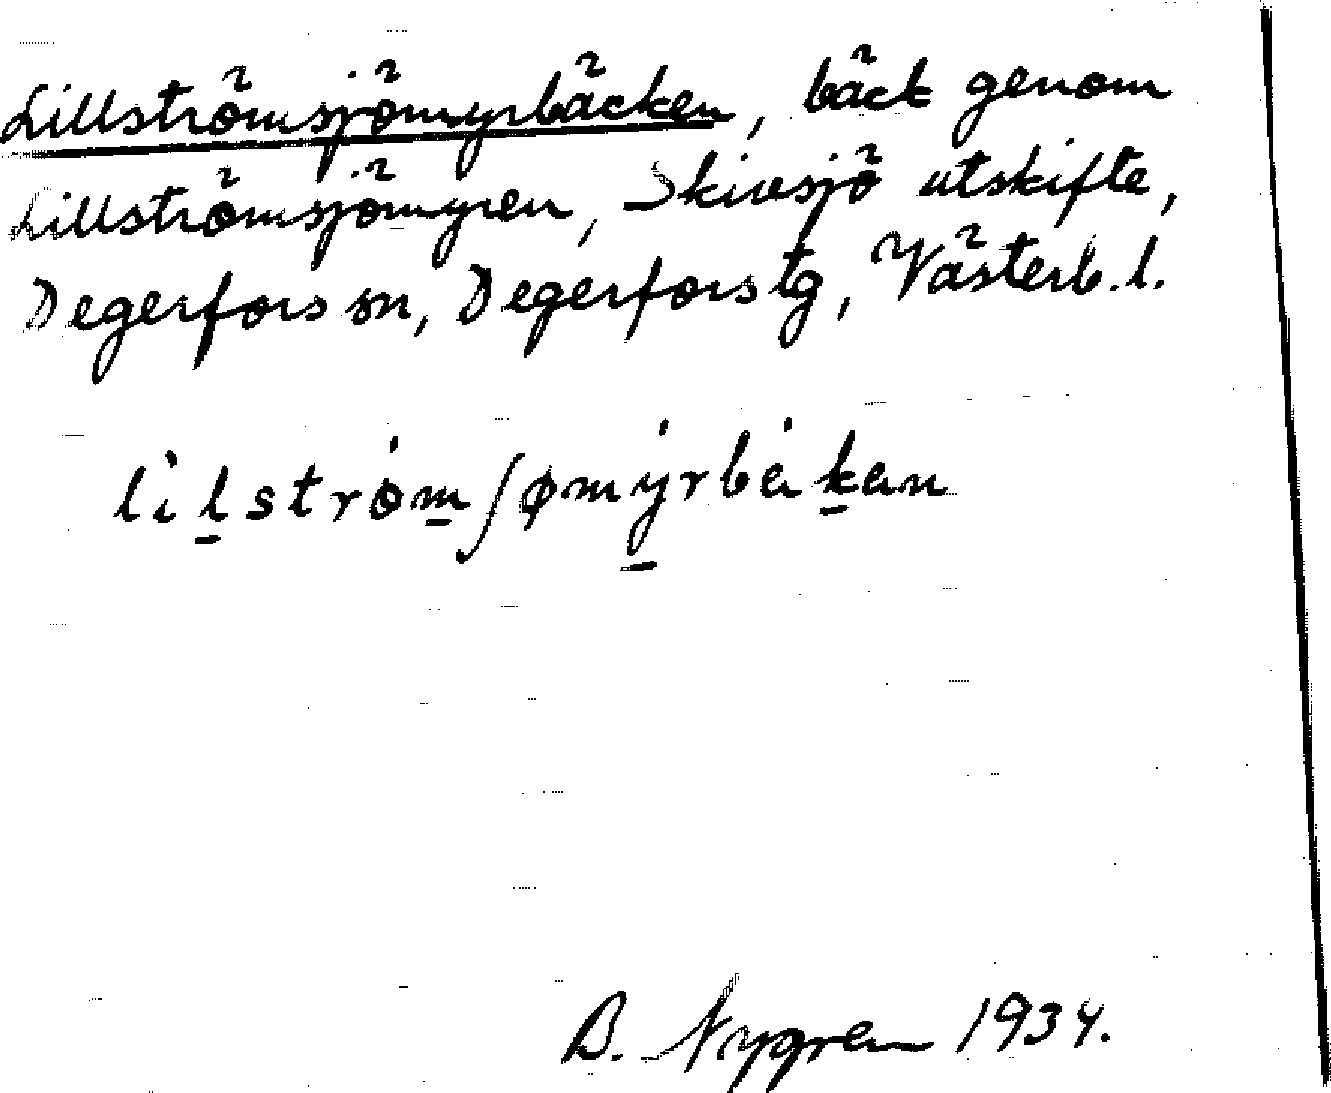 Lillströmsjömyrbäcken, bäck genom
Lillströmsjömyren, Skivsjö utskifte,
Degerfors sn, Degerfors tg, Västerb. l.
lilström∫ømyrbäkan
B. Nygren 1934.